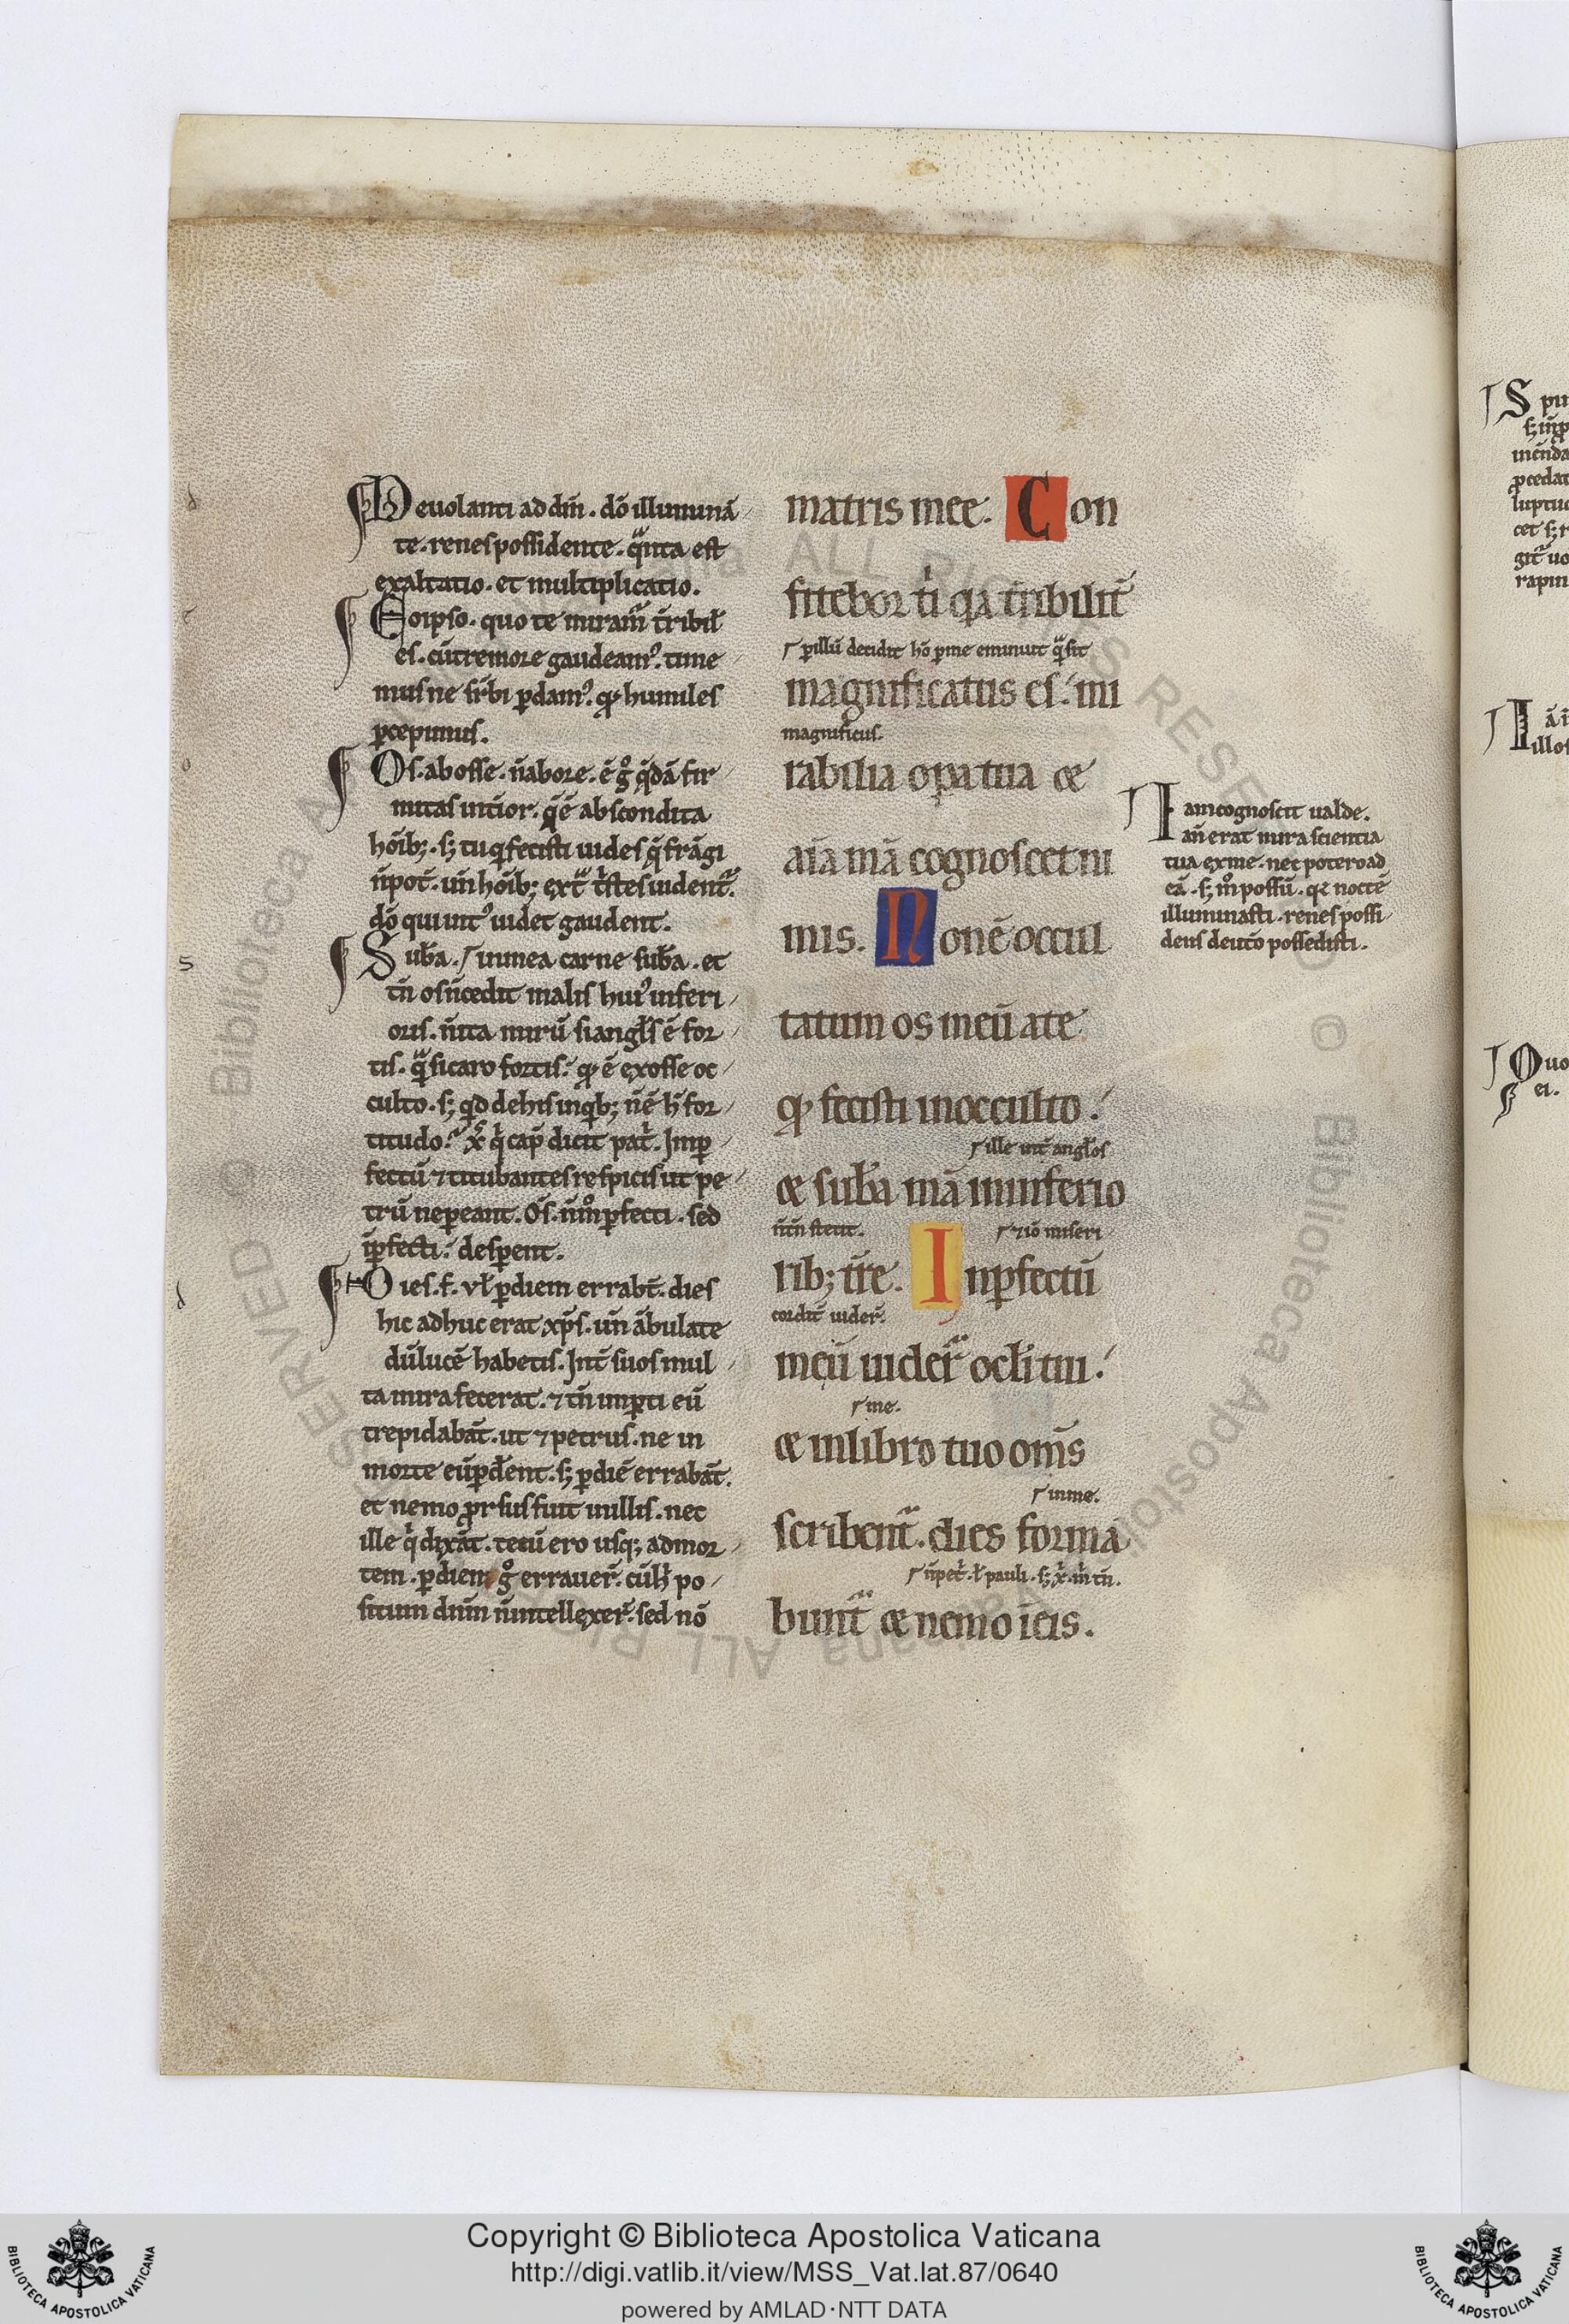 Deuolanti ad dm̄. dō illuminā
te. renes possidente. q̄ ita est
exaltatio. et multiplicatio.
Eo ipso. quo te miram̄ tr̄ibil
es. cū tremore gaudeamꝰ. time
mus ne sr̄bi ꝑdamꝰ. qͥ humiles
ꝑcepimus.
Os. ab osse. n̄ abore. ē gͦ q̄dā fir
mitas int̄ior. q̄ ē abscondita
hōib;. s; tu qͥ fecisti uides q̄ frāgi
n̄ pot̄. uñ hōib; ext̄ t̄stes uident̄.
dō qui intꝰ uidet gaudent.
Subā. in mea carne subā. et
tn̄ os n̄ cedit malis huꝰ inferi
oris. n̄ ita mirū si angl̄s ē for
tis. q̄ si caro fortis. qͥ ē ex osse oc
culto. s; qd de his in qͥb; n̄ ē h̄ for
titudo. xͨ qͥ cap̄ dicit pat̄. Imꝑ
fectū ⁊ titubantes respicis ut pe
trū ne ꝑeant. Os. n̄ mͦ ꝑfecti. sed
iꝑfecti. desꝑent.
Dies. f. vl̄ ꝑ diem errab̄t. dies
hic adhuc erat xp̄s. uñ ābulate
dū lucē habetis. Int̄ suos mul
ta mira fecerat. ⁊ tn̄ imꝑti eū
trepidabāt. ut ⁊ petrus. ne in
morte eū ꝑdent. s; ꝑ diē errabāt.
et nemo ꝓrsus fuit in illis. nec
ille qͥ dixāt. tecū ero usq; ad mor
tem. ꝑ diem gͦ errauer̄. cū h̄ po
situm dn̄m n̄ intellexer̄. sed nō
matris mee. Con
fitebor tͥ qͣ tr̄ibilit̄
ꝑ illū decidit hō ꝑ me eminuit q̄ sit
magnificatus es. mi
magnificus.
rabilia oꝑa tua æ
aīa mā cognoscet ni
mis. Non ē occul
tatum os meū a te
qͥ fecisti in occulto.
ille int̄ angl̄os
æ subā mā in inferio
n̄ tn̄ stetit. ⁊ iō miseri
rib; tr̄e. Inꝑfectū
cordit̄ uider̄.
meū uider̄ ocl̄i tui.
me.
æ in libro tuo om̄s
in me.
scribent̄. dies forma
n̄ pet̄. l̄ pauli. s; xͥ. mͥ tn̄.
bunt̄ æ nemo ī eis.
Iam cognoscit ualde.
añ erat mira scientia
tua ex me. nec potero ad
eā. s; mͦ possū. qꝛ noctē
illuminasti. renes possi
dens de uto possedisti.
Copyright © Biblioteca Apostolica Vaticana
http://digi.vatlib.it/view/MSS_Vat.lat.87/0640
powered by AMLAD·NTT DATA